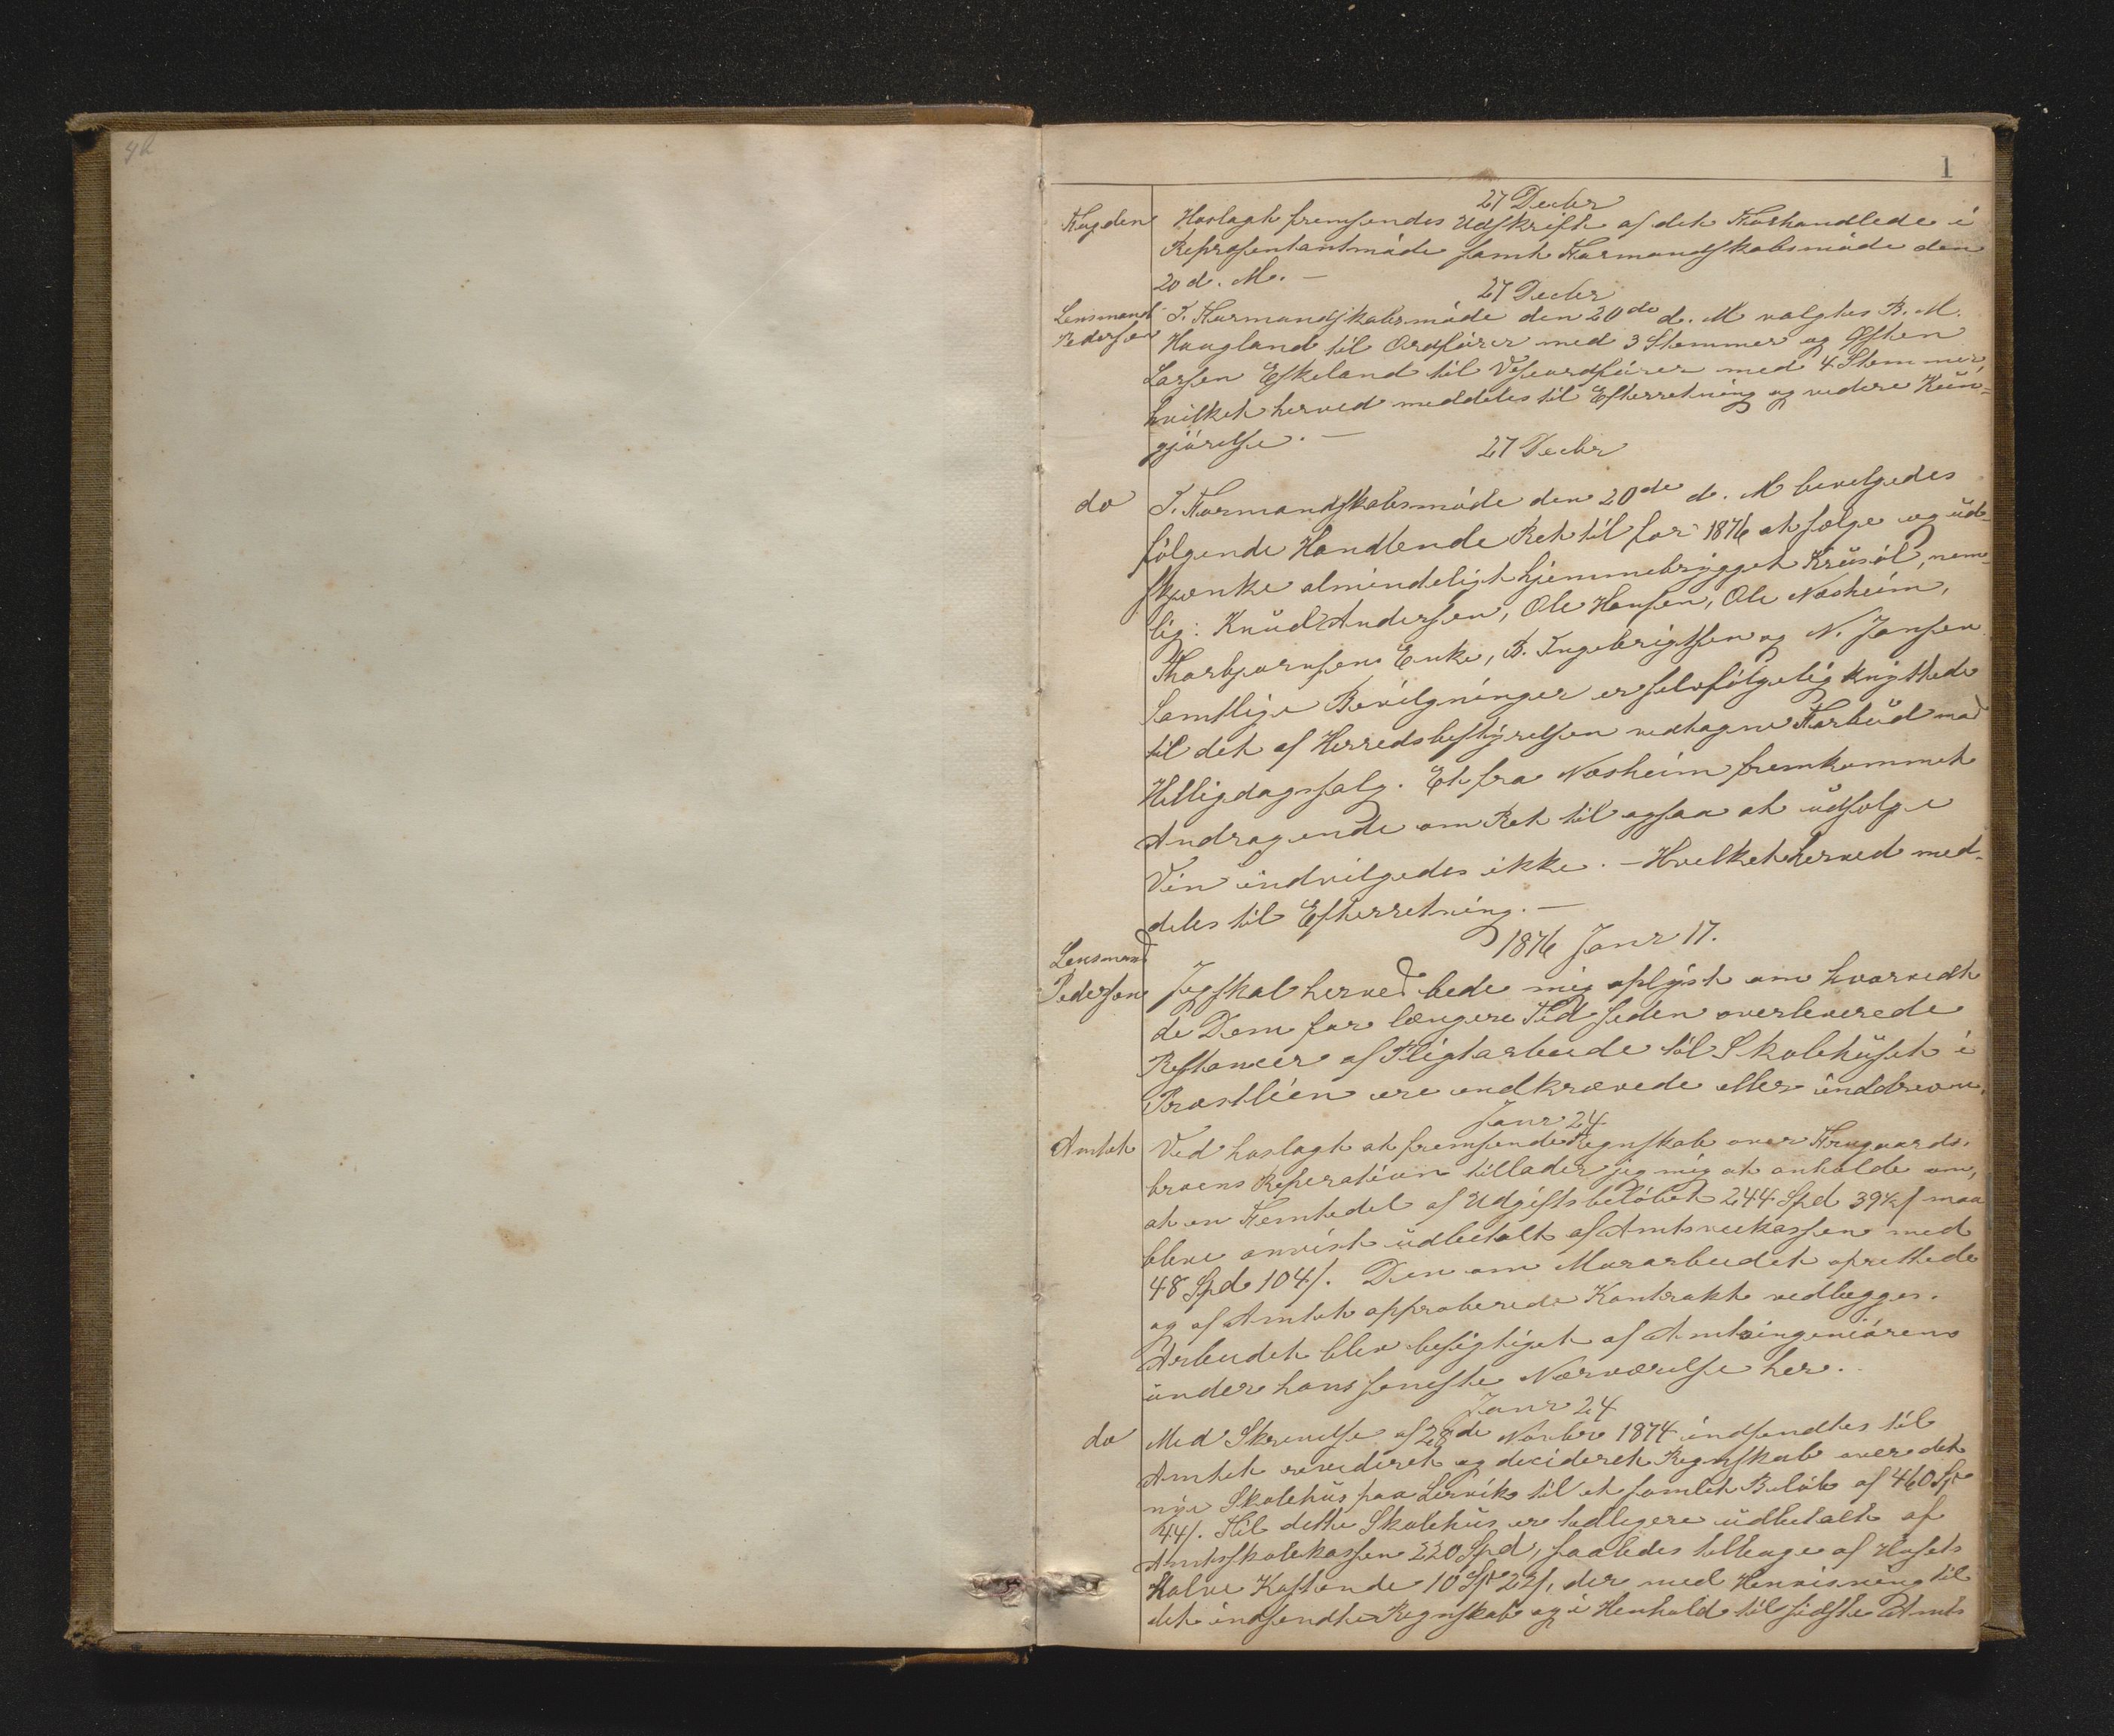 1
27 Decbr
Fogden Hoslagt fremsendes Udskrift af det Forhandlede i
Repræsentantmøde samt Formandskabsmøde den
20 d. M. –
27 Decbr
Lensmand I Formandskabsmøde den 20de d. M valgtes B. M.
Pedersen Haugland til Ordfører med 3 Stemmer og Østen
Larsen Eskeland til Viseordfører med 4 Stemmer,
hvilket herved meddeles til Efterretning og videre Kun-
gjørelse. –
27 Decbr
do I Formandskabsmøde den 20de d. M bevilgedes
følgende Handlende Ret til for 1876 at sælge og ud-
skjænke almindeligt hjemmebrygget Krusøl, nem-
lig: Knud Andersen, Ole Hansen, Ole Næsheim,
Thorbjørnsens Enke, B. Ingebrigtsen og N. Jansen
Samtlige Bevilgninger er selvfølgelig knyttede
til det af Herredsbestyrelsen vedtagne Forbud mod
Helligdagssalg. Et fra Næsheim fremkommet
Andragende om Ret til ogsaa at udsælge
Vin indvilgedes ikke. – Hvilket herved med-
deles til Efterretning. –
1876 Janr 17.
Lensmand
Pedersen Jeg skal herved bede mig oplyst om hvorvidt
de Dem for længere Tid siden overleverede
Restancer af Pligtarbeide til Skolehuset i
Præstlien ere indkrævede eller inddrevne.
Janr 24
Amtet Ved hoslagt at fremsende Regnskab over
broens Reperation tillader jeg mig at anholde om,
at en Femtedel af Udgiftsbeløbet 244 Spd 39½ s maa
blive anvist udbetalt af Amtsveikassen med
48 Spd 104 s. Den om Murarbeidet oprettede
og af Amtet approberede Kontrakt vedlægges.
Arbeidet blev besigtiget af Amtsingeniøren
under hans seneste Nærværelse her.
Janr 24
do Med Skrivelse af 28de Novbr 1874 indsendtes til
Amtet revideret og decideret Regnskab over det
nye Skolehus paa Lervik til et samlet Beløb af 460 Spd
44 s. Til dette Skolehus er tidligere udbetalt af
Amtsskolekassen 220 Spd, saaledes tilbage af Husets
halve Kostende 10 Spd 22 s, der med Henvisning til
det indsendte Regnskab og i Henhold til sidste Amts